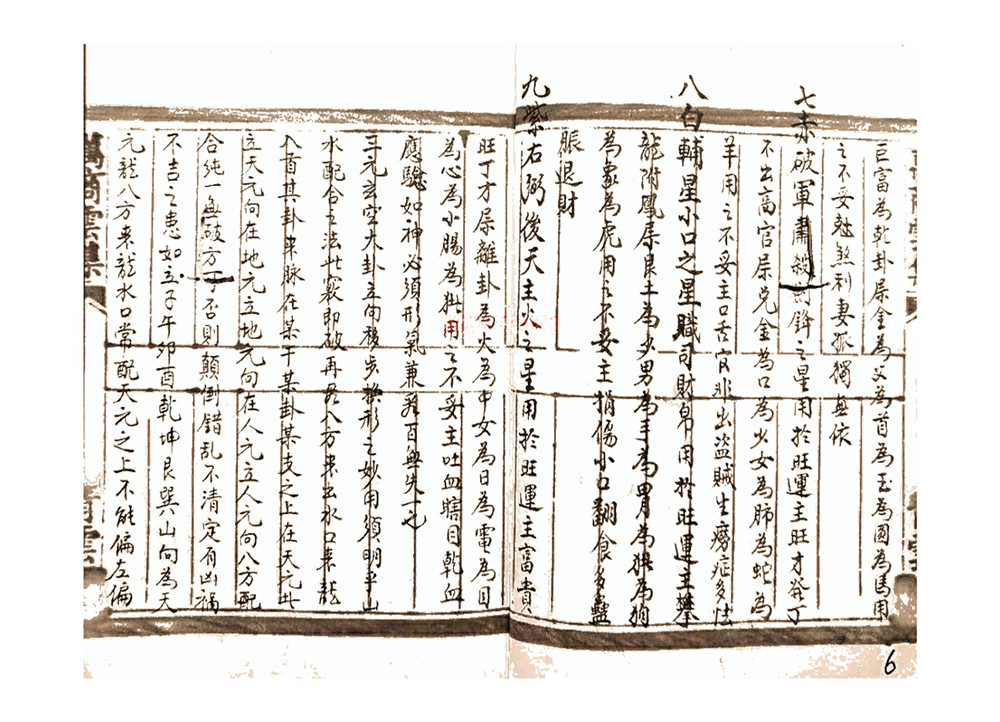 巨富為乾卦屬金為父為首為玉為國為馬用
之不妥尅煞刑妻孤獨無依
七赤破軍肅殺劍鋒之星用於旺運主旺才發丁
不出高官屬兌金為口為少女為肺為蛇為
羊用之不妥主口舌官非出盜賊生癆症多怯
八白輔星小口之星職司財帛用於旺運主攀
龍附鳳屬艮土為少男為手為胃為狗
為虎用之不妥主損傷小口翻食多蠱
脹退財
九紫右弼後天主火之星用於旺運主富貴
旺丁才屬離卦為火為中女為日為電為目
為心為小腸為 用之不妥主吐血瞎目乾血
應驗如神必須形氣兼察百無失一也
三元玄空大卦立向移步換形之妙用須明乎山
水配合之法此竅即破再察八方來出水口來龍
入首其卦來脉在某干某卦某支之上在天元此
立天元向在地元立地元向在人元立人元向八方配
合純一無破方可否則顛倒錯乱不清定有凶禍
不吉之患如立子午卯酉乾坤艮巽山向為天
元龍八方來龍水口常配天元之上不能偏左偏
萬商雲集
商雲
6